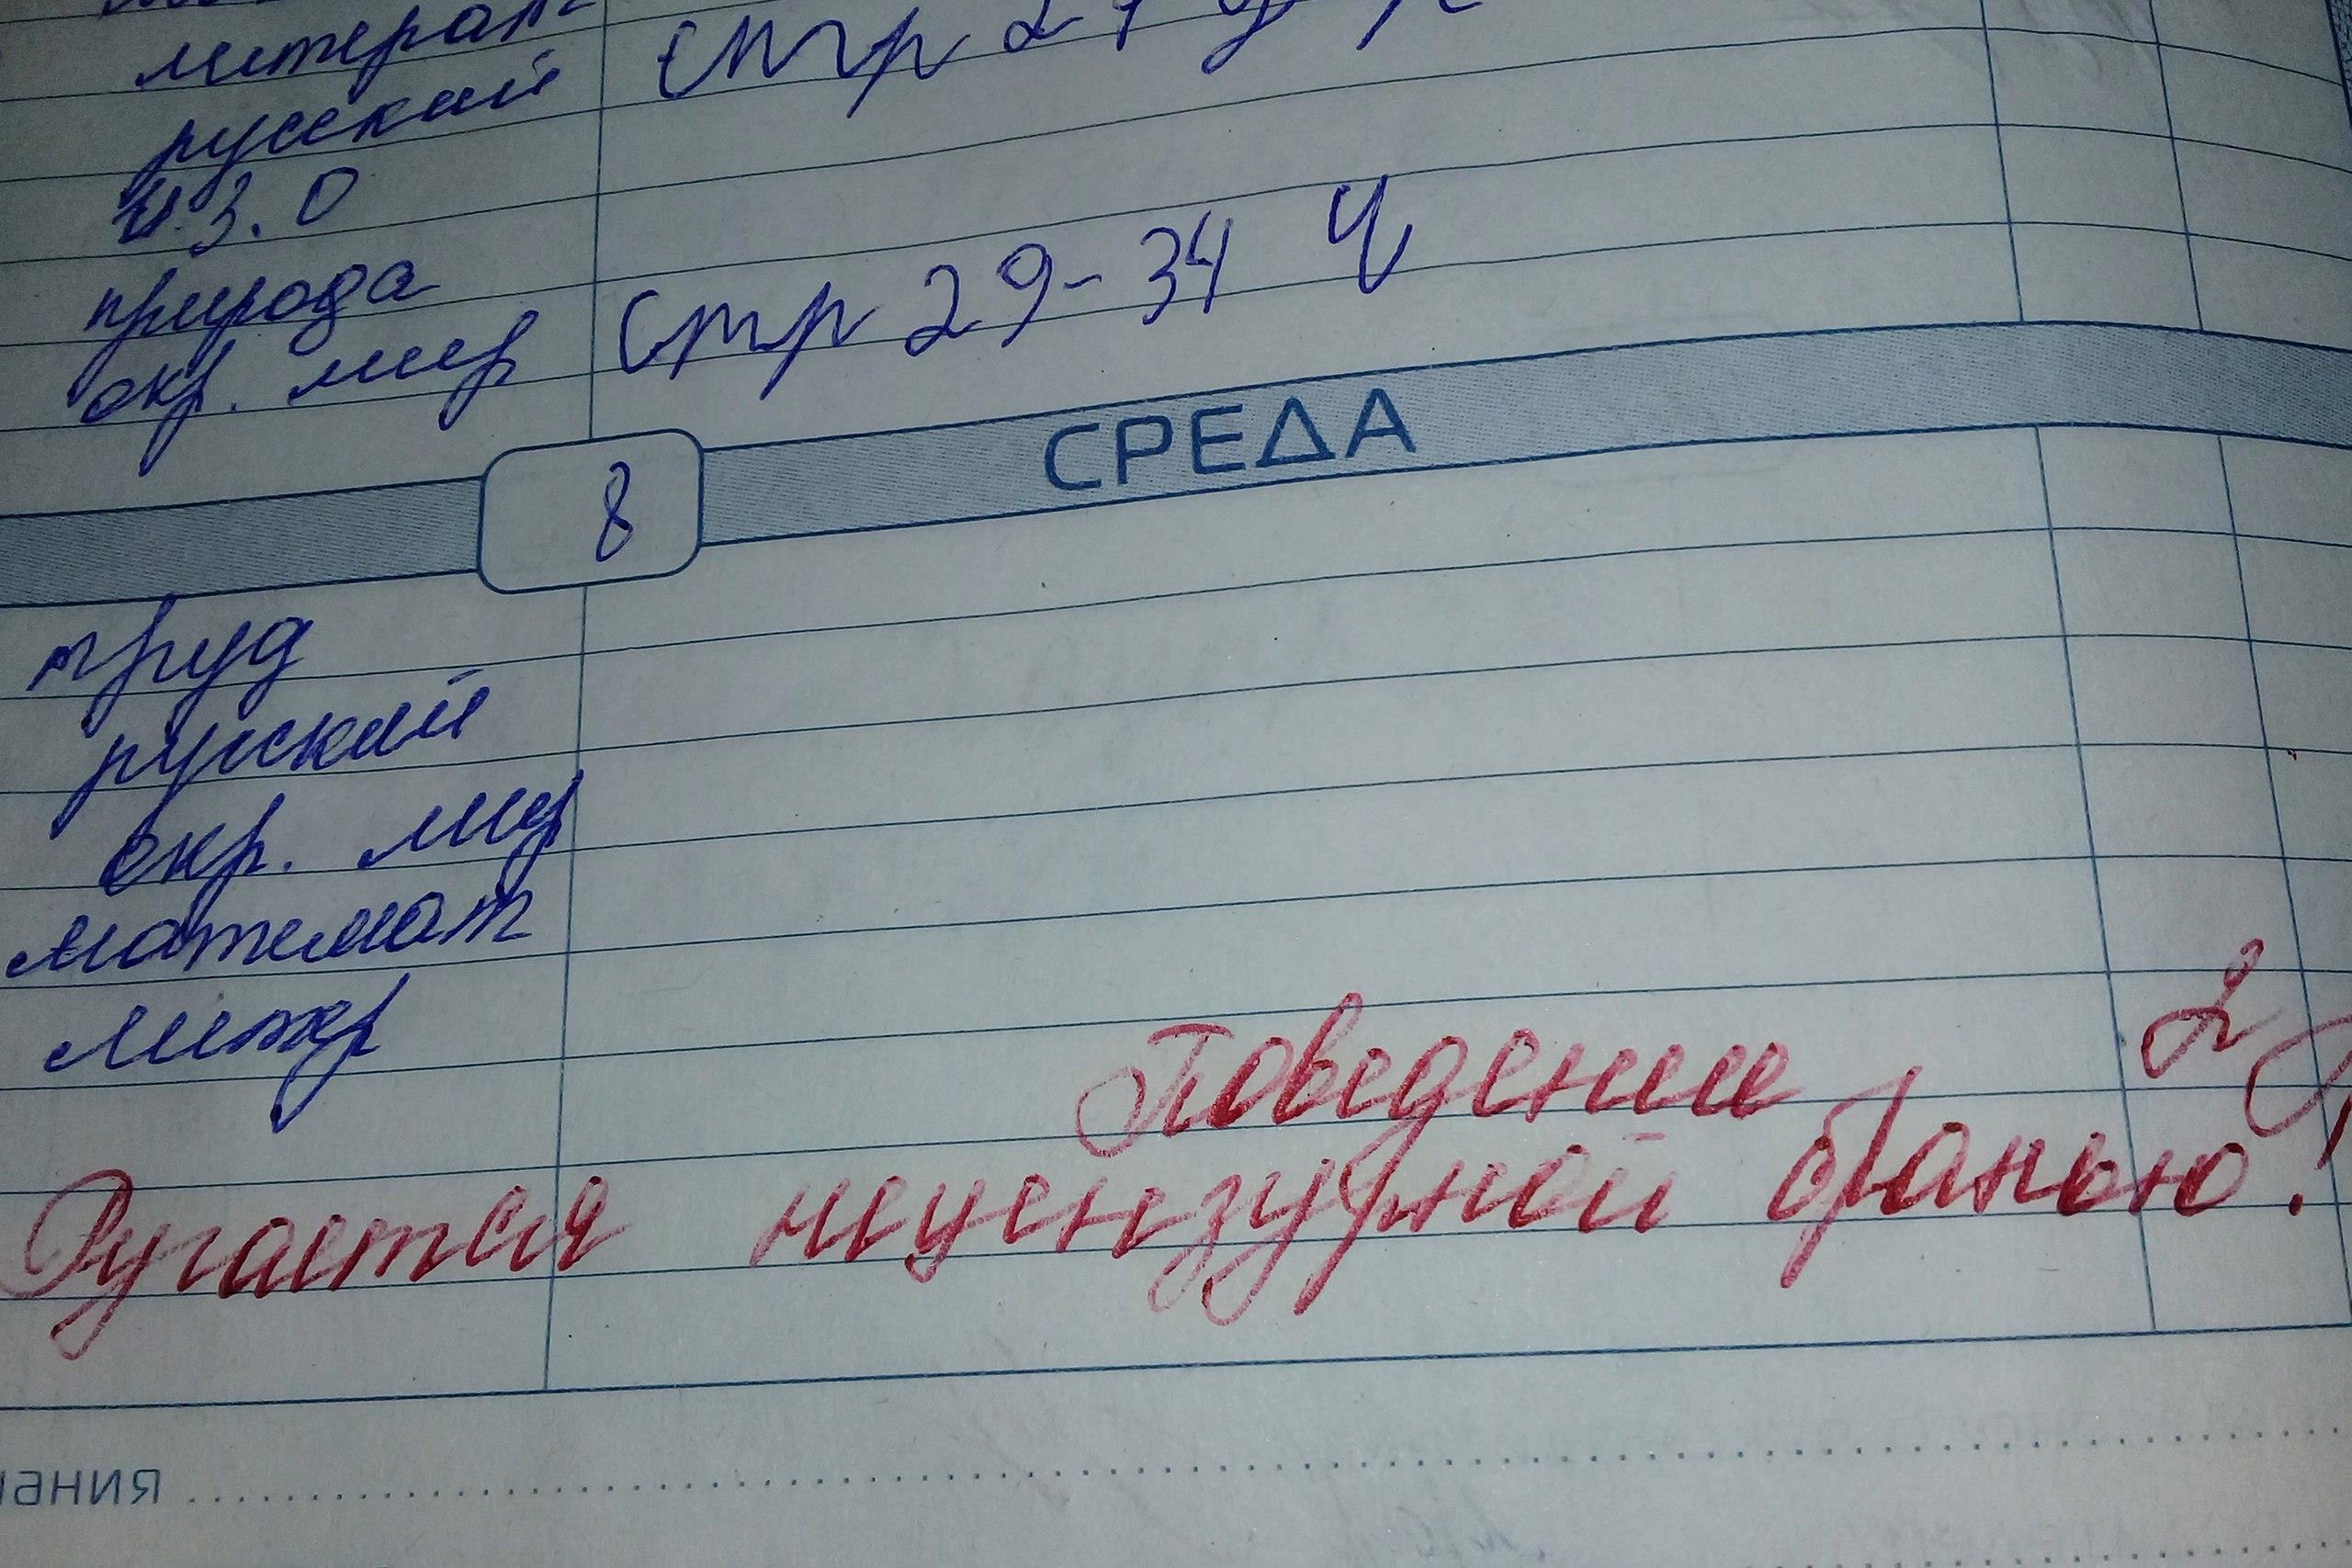 литерат
русский стр 2
И.З.О
природа
окр. мир стр 29-34 Ч
8 СРЕДА
труд
русский
окр. мир
математ
литер
Поведение 2
Ругается нецензурной бранью!